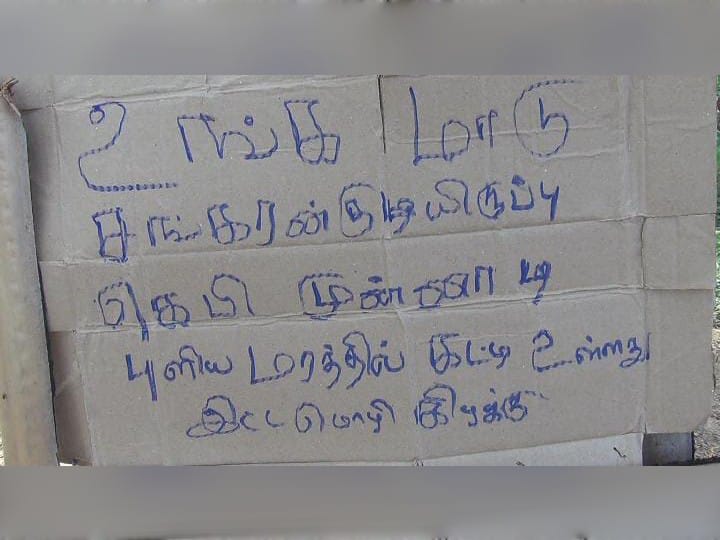 உங்க மாடு
சங்கரன்குடியிருப்பு
கெபி முன்னாடி
புளிய மரத்தில் கட்டி உள்ளது
இட்டமொழி கிழக்கு